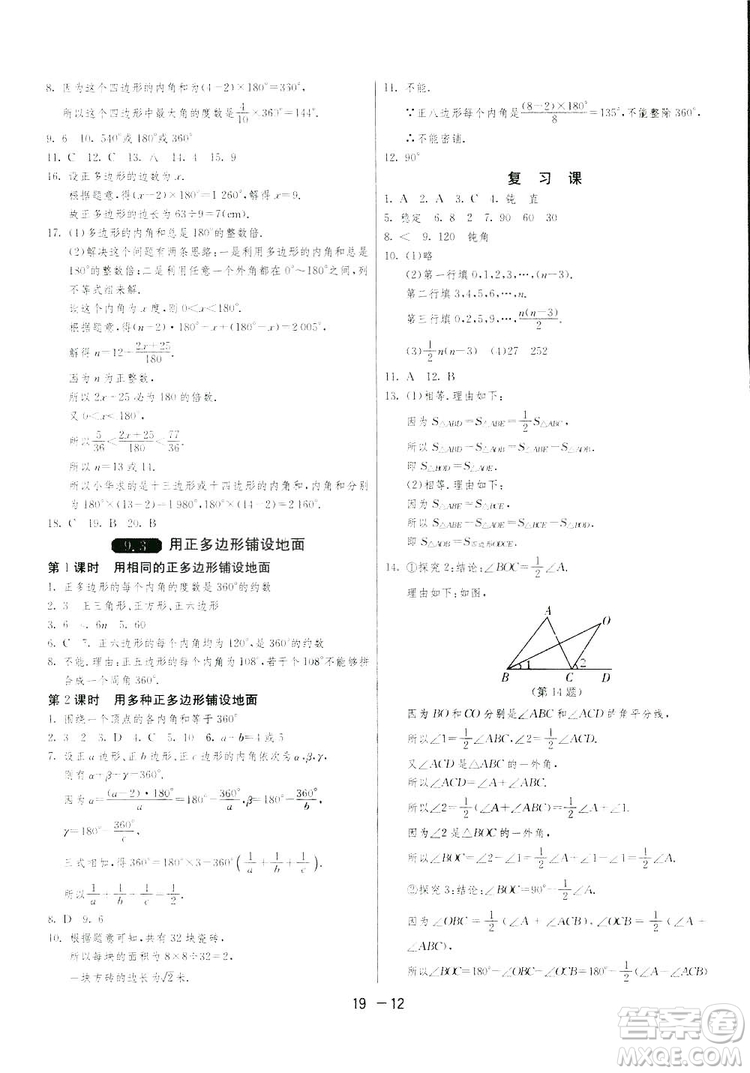 8. 因为这个四边形的内角和为(4-2)×180°=360°,
所以这个四边形中最大角的度数是4/10×360°=144°.
9. 6 10. 540°或180°或360°
11. C 12. C 13. 八 14. 4 15. 9
16. 设正多边形的边数为x.
根据题意,得(x-2)×180°=1 260°,解得x=9.
故正多边形的边长为63÷9=7(cm).
17. (1)多边形的内角和总是180°的整数倍.
(2)解决这个问题有两条思路:一是利用多边形的内角和总是180°的整数倍;二是利用任意一个外角都在0°~180°之间,列不等式组来解.
设这个内角为x度,这个多边形为n边形.
根据题意,得(n-2)×180°-x°+(180°-x°)=2 005,
解得n=12+(2x+25)/180.
因为n为正整数,
所以2x+25为180的倍数.
又0<x<180,
所以5/36<(2x+25)/180<77/36.
所以n=13或14.
所以小华求的是十三边形或十四边形的内角和,内角和分别为180°×(13-2)=1 980°,180°×(14-2)=2 160°.
18. C 19. B 20. B
9.3 用正多边形铺设地面
第1课时 用相同的正多边形铺设地面
1. 正多边形的每个内角的度数是360°的约数
2. 3 正三角形,正方形,正六边形
3. 6 4. 6n 5. 4
6. C 7. 正六边形的每个内角均为120°,是360°的约数
8. 不能.理由:正五边形的每个内角为108°,若干个108°不能够拼合成一个周角360°.
第2课时 用多种正多边形铺设地面
1. 围绕一个顶点的各内角和等于360°
2. 3 3. 2 4. D 5. 10 6. 4或5
7. 设正a边形,正b边形,正c边形的内角依次为α,β,γ,
则α+β+γ=360°.
因为α=(a-2)·180°/a,β=(b-2)·180°/b,
γ=(c-2)·180°/c,
三式相加,得180°×3-360°(1/a+1/b+1/c)=360°,
所以1/a+1/b+1/c=1/2.
8. D 9. 6
10. 根据题意可知,共有32块瓷砖,
所以每块的面积为8×8÷32=2(平方米),
一块方砖的边长为√2米.
11. 不能.
∵正八边形每个内角为(8-2)×180°/8=135°,不能整除360°,
∴不能密铺.
12. 90°
复习课
1. A 2. A 3. C 4. 钝 直
5. 稳定 6. 8 2 7. 90 60 30
8. < 9. 120 钝角
10. (1)略
(2)第一行填0,1,2,3,…,(n-3)
第二行填3,4,5,6,…,n
第三行填0,2,5,9,…,n(n-3)/2
(3)1/2n(n-3) (4)27 252
11. A 12. B
13. (1)相等.理由如下:
因为S△ABD=S△ABE=1/2S△ABC,
所以S△ABD-S△AOB=S△ABE-S△AOB,
即S△BOD=S△AOE.
(2)相等.理由如下:
14. ①探究2:结论:∠BOC=1/2∠A.
理由如下:如图,
A O 1 2 B C D
(第14题)
因为BO和CO分别是∠ABC和∠ACD的角平分线,
所以∠1=1/2∠ABC,∠2=1/2∠ACD.
又∠ACD是△ABC的一外角,
所以∠ACD=∠A+∠ABC.
所以∠2=1/2(∠A+∠ABC)=1/2∠A+∠1.
因为∠2是△BOC的一外角,
所以∠BOC=∠2-∠1=1/2∠A+∠1-∠1=1/2∠A.
②探究3:结论:∠BOC=90°-1/2∠A.
19 -12
答案圈
MXQE.COM